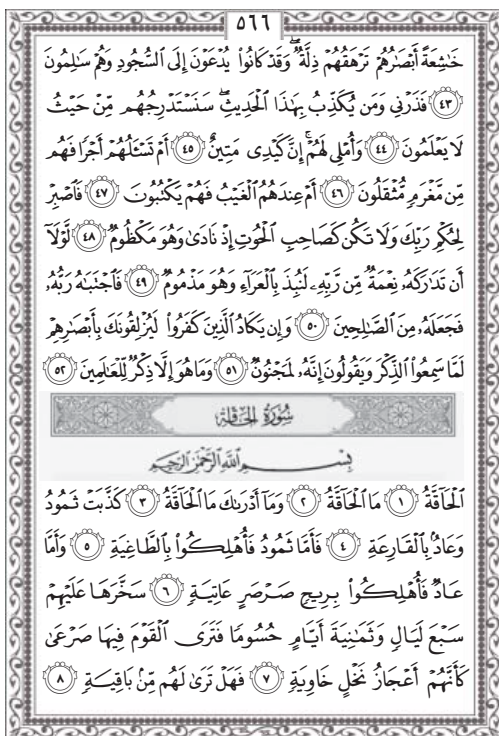 ٥٦٦
خَٰشِعَةً أَبْصَٰرُهُمْ تَرْهَقُهُمْ ذِلَّةٌۖ وَقَدْ كَانُوا۟ يُدْعَوْنَ إِلَى ٱلسُّجُودِ وَهُمْ سَٰلِمُونَ
٤٣ فَذَرْنِى وَمَن يُكَذِّبُ بِهَٰذَا ٱلْحَدِيثِۖ سَنَسْتَدْرِجُهُم مِّنْ حَيْثُ
لَا يَعْلَمُونَ ٤٤ وَأُمْلِى لَهُمْۚ إِنَّ كَيْدِى مَتِينٌ ٤٥ أَمْ تَسْـَٔلُهُمْ أَجْرًا فَهُم
مِّن مَّغْرَمٍ مُّثْقَلُونَ ٤٦ أَمْ عِندَهُمُ ٱلْغَيْبُ فَهُمْ يَكْتُبُونَ ٤٧ فَٱصْبِرْ
لِحُكْمِ رَبِّكَ وَلَا تَكُن كَصَاحِبِ ٱلْحُوتِ إِذْ نَادَىٰ وَهُوَ مَكْظُومٌ ٤٨ لَّوْلَآ
أَن تَدَٰرَكَهُۥ نِعْمَةٌ مِّن رَّبِّهِۦ لَنُبِذَ بِٱلْعَرَآءِ وَهُوَ مَذْمُومٌ ٤٩ فَٱجْتَبَٰهُ رَبُّهُۥ
فَجَعَلَهُۥ مِنَ ٱلصَّٰلِحِينَ ٥٠ وَإِن يَكَادُ ٱلَّذِينَ كَفَرُوا۟ لَيُزْلِقُونَكَ بِأَبْصَٰرِهِمْ
لَمَّا سَمِعُوا۟ ٱلذِّكْرَ وَيَقُولُونَ إِنَّهُۥ لَمَجْنُونٌ ٥١ وَمَا هُوَ إِلَّا ذِكْرٌ لِّلْعَٰلَمِينَ ٥٢
سُورَةُ الْحَاقَّةِ
بِسْمِ ٱللَّهِ ٱلرَّحْمَٰنِ ٱلرَّحِيمِ
ٱلْحَآقَّةُ ١ مَا ٱلْحَآقَّةُ ٢ وَمَآ أَدْرَىٰكَ مَا ٱلْحَآقَّةُ ٣ كَذَّبَتْ ثَمُودُ
وَعَادٌۢ بِٱلْقَارِعَةِ ٤ فَأَمَّا ثَمُودُ فَأُهْلِكُوا۟ بِٱلطَّاغِيَةِ ٥ وَأَمَّا
عَادٌ فَأُهْلِكُوا۟ بِرِيحٍ صَرْصَرٍ عَاتِيَةٍ ٦ سَخَّرَهَا عَلَيْهِمْ
سَبْعَ لَيَالٍ وَثَمَٰنِيَةَ أَيَّامٍ حُسُومًا فَتَرَى ٱلْقَوْمَ فِيهَا صَرْعَىٰ
كَأَنَّهُمْ أَعْجَازُ نَخْلٍ خَاوِيَةٍ ٧ فَهَلْ تَرَىٰ لَهُم مِّنۢ بَاقِيَةٍ ٨